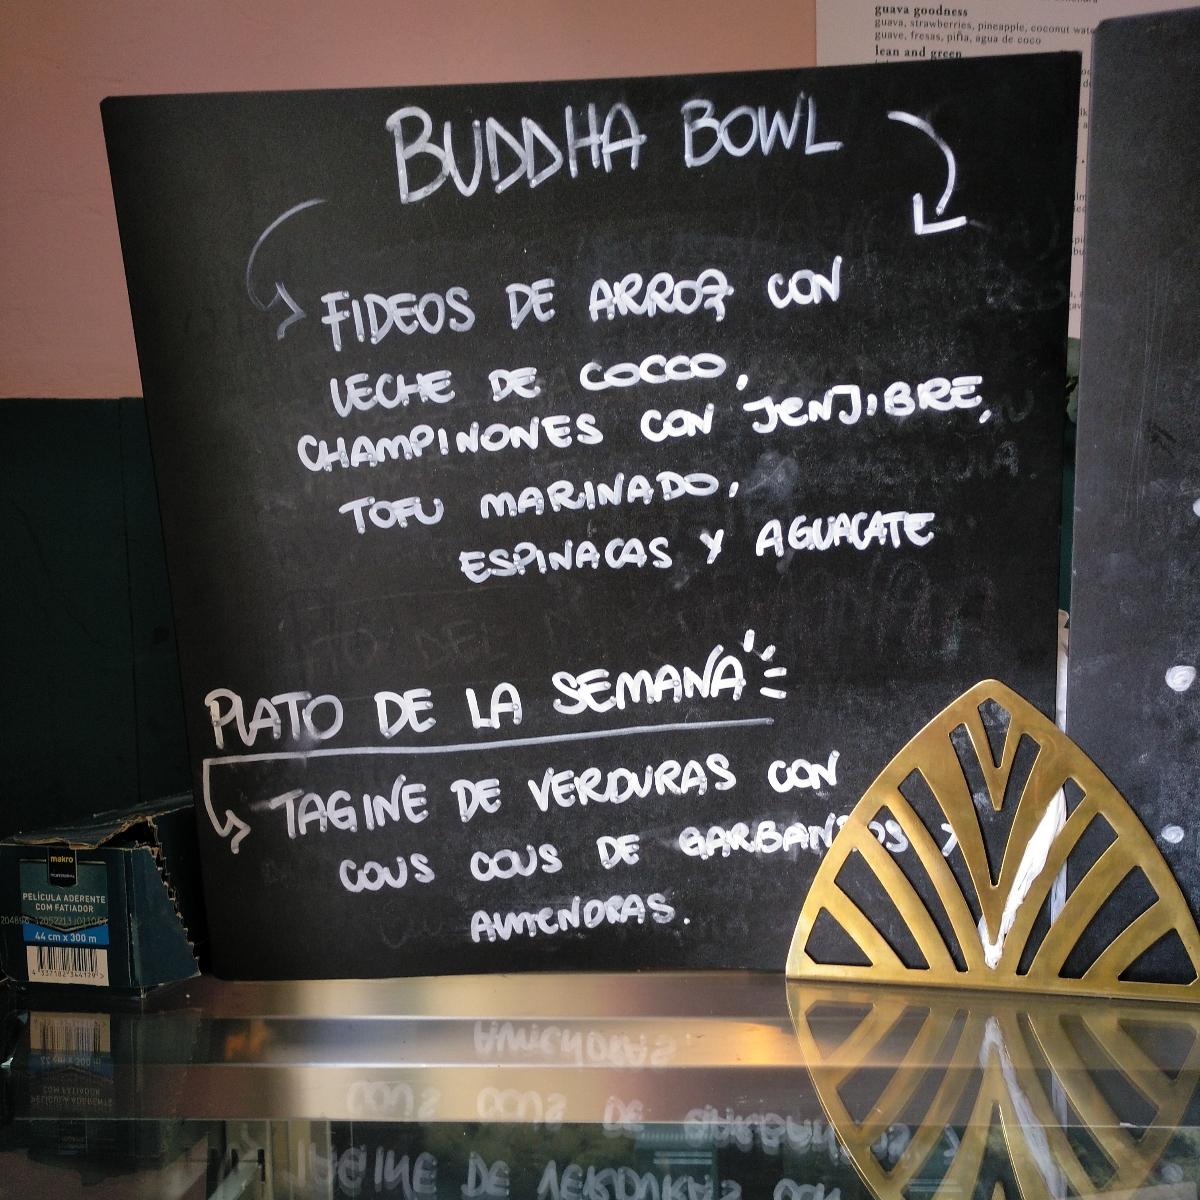 guava goodness
guava, strawberries, pineapple, coconut wate
guave, fresas, piña, agua de coco
lean and green
BUDDHA BOWL
FIDEOS DE ARROZ CON
LECHE DE COCCO,
CHAMPINONES CON JENJIBRE,
TOFU MARINADO,
ESPINACAS Y AGUACATE
PLATO DE LA SEMANA
TAGINE DE VERDURAS CON
COUS COUS DE GARBANZOS Y
ALMENDRAS.
makro
PROFESSIONAL
PELÍCULA ADERENTE
COM FATIADOR
44 cm x 300 m